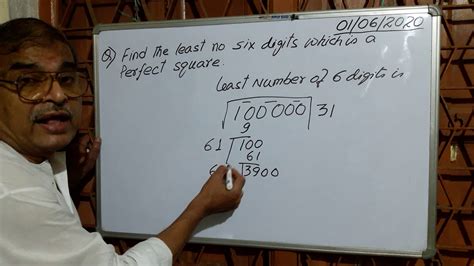 01/06/2020
Q) Find the least no six digits which is a
Perfect square.
Least Number of 6 digits is
100000 31
9
61 100
61
6 3900